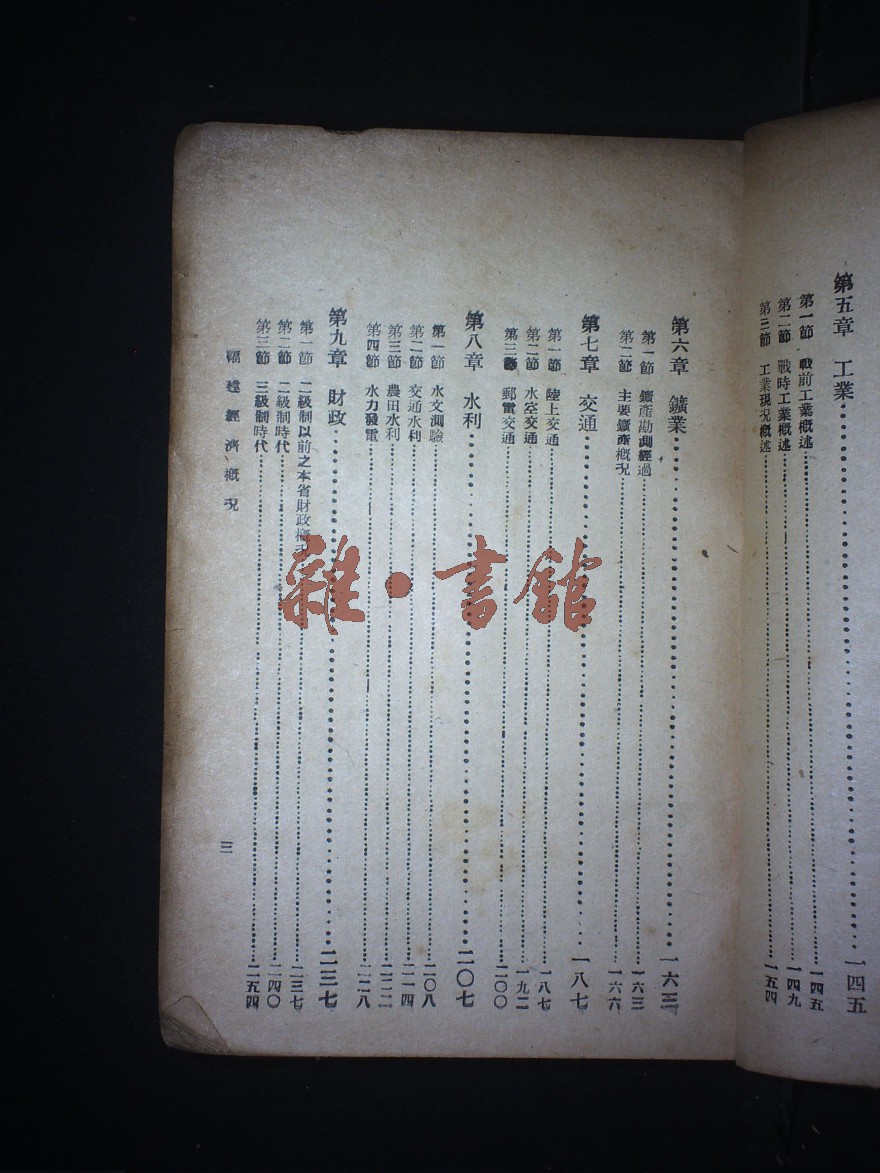 第五章 工業 一四五
第一節 戰前工業概述 一四五
第二節 戰時工業概述 一四九
第三節 工業現況概述 一五四
第六章 鑛業 一六三
第一節 鑛產勘測經過 一六三
第二節 主要鑛產概況 一六六
第七章 交通 一八七
第一節 陸上交通 一八七
第二節 水空交通 一九二
第三節 郵電交通 二〇〇
第八章 水利 二〇七
第一節 水文測驗 二〇八
第二節 交通水利 二一四
第三節 農田水利 二二二
第四節 水力發電 二二八
第九章 財政 二三七
第一節 二級制以前之本省財政概況 二三七
第二節 二級制時代 二四〇
第三節 三級制時代 二五四
福建經濟概況 三
雜·書館